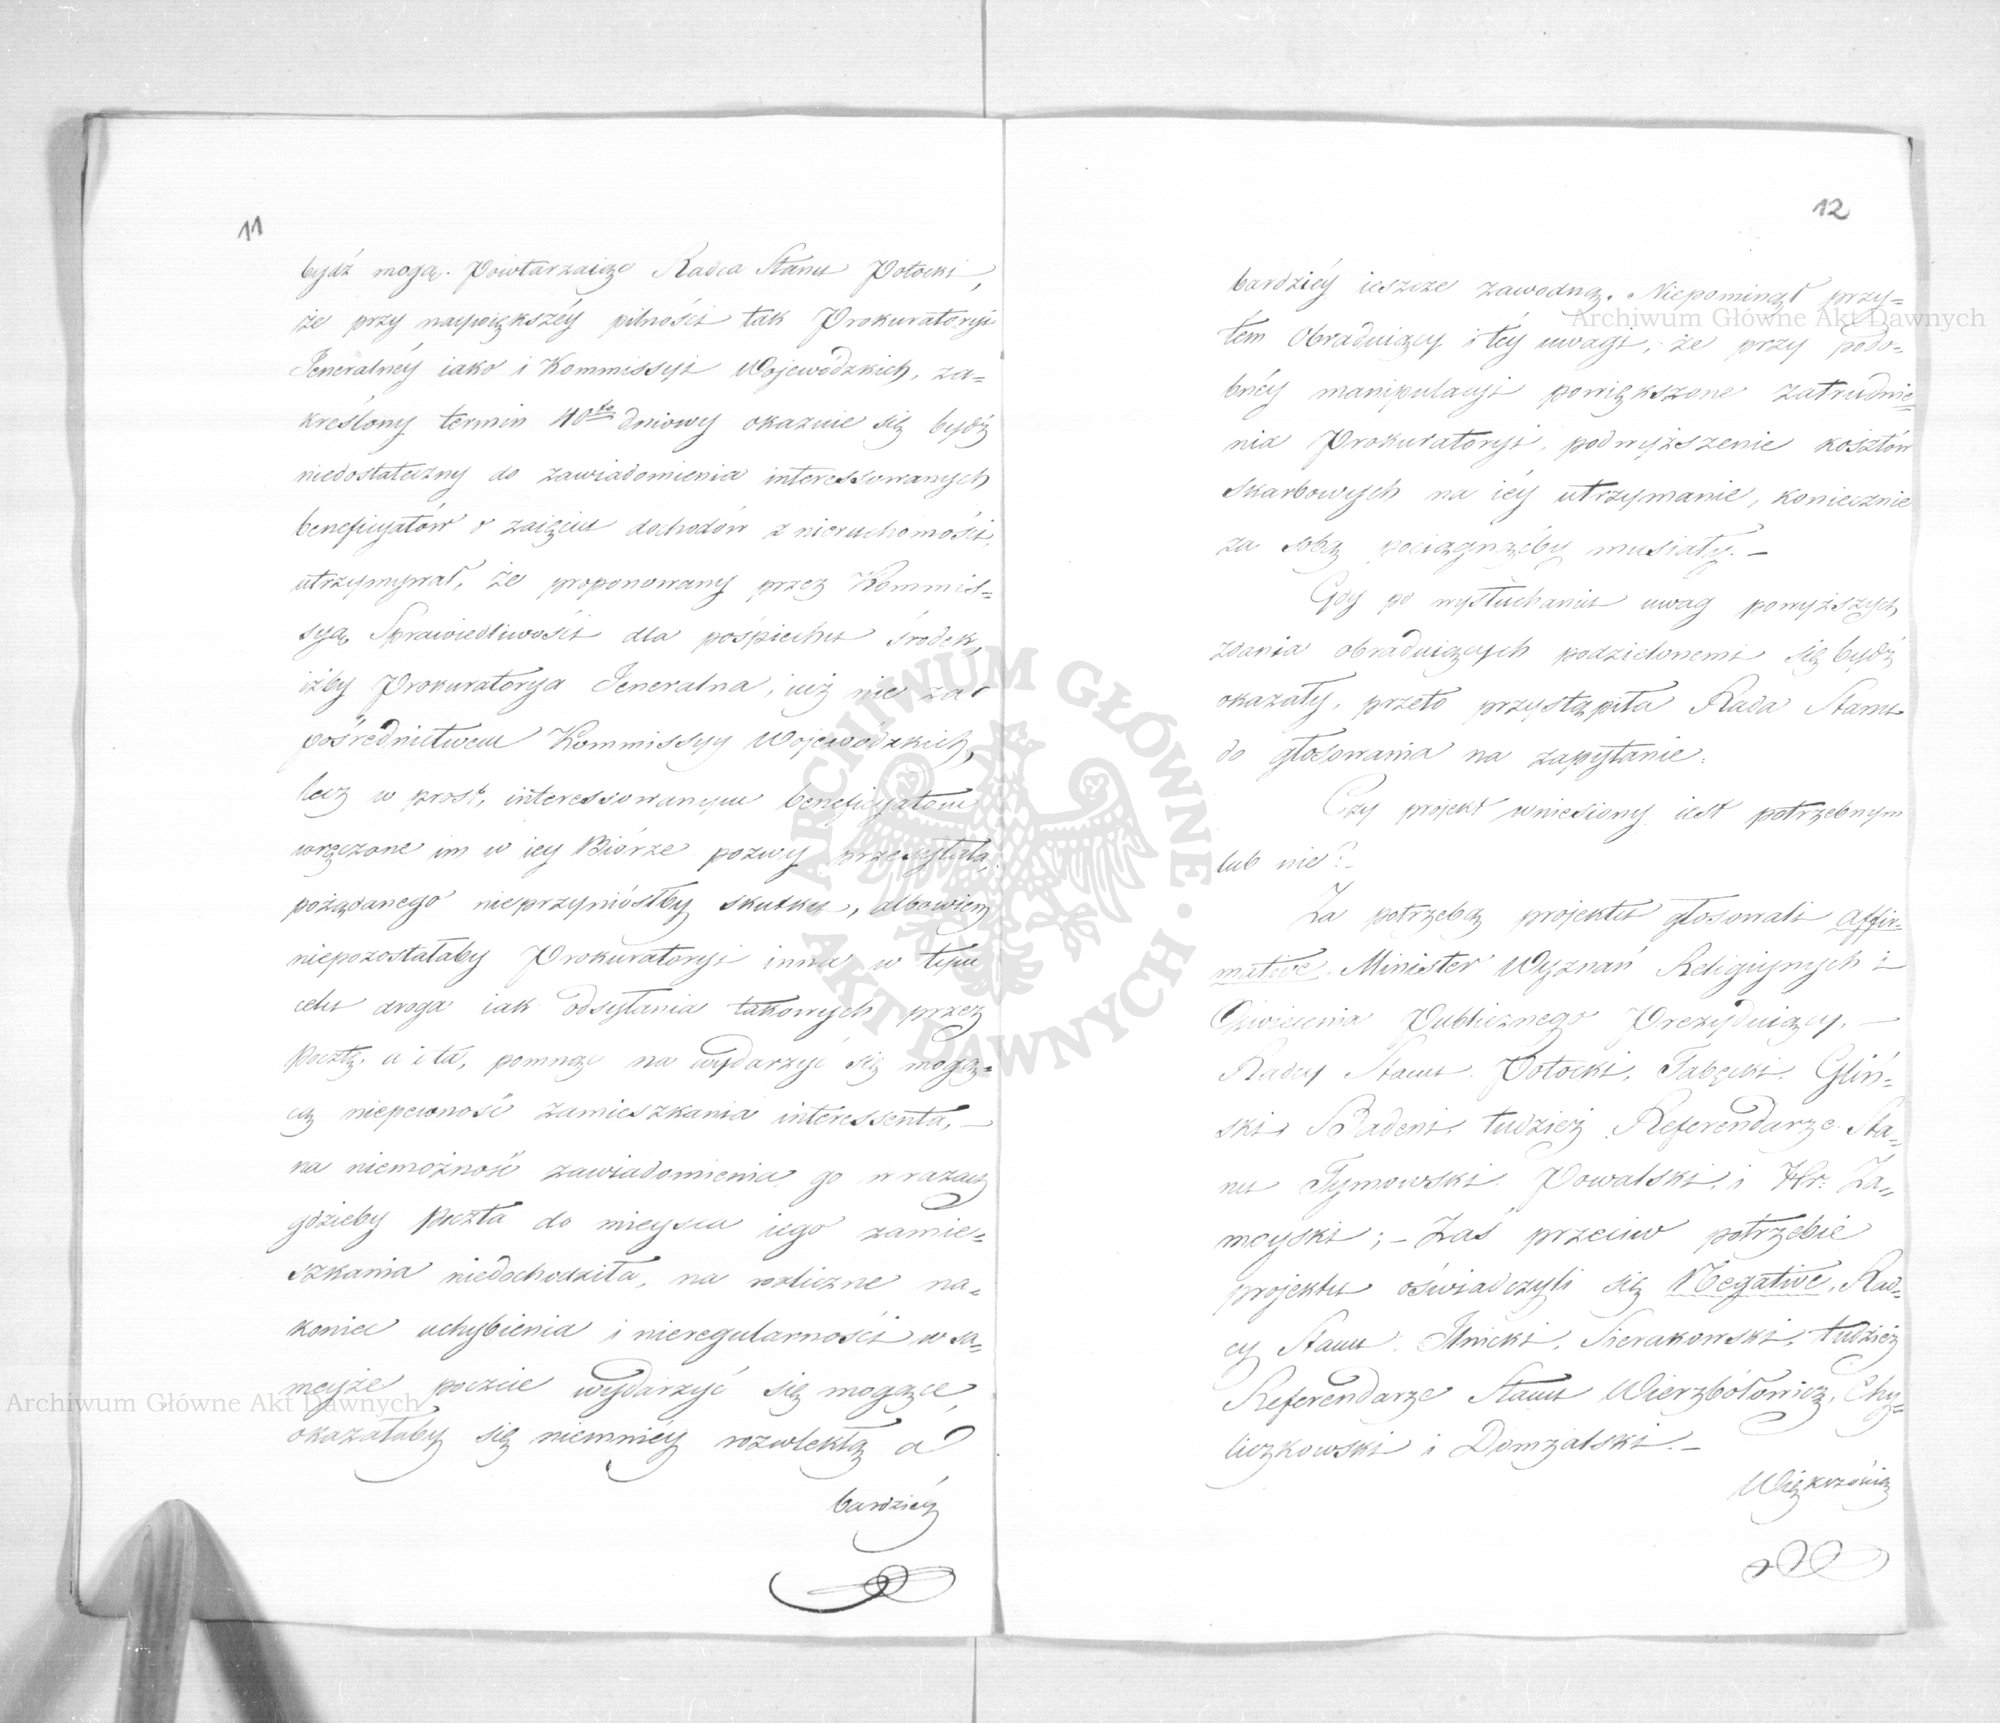 11
bydź mogą. Powtarzaiąc Radca Stanu Potocki,
że przy naywiększéy pilności tak Prokuratoryi
Jeneralnéy iako i Kommissyi Wojewódzkich, za=
kreślony termin 40to dniowy okazuie się bydź
niedostateczny do zawiadomienia interessowanych
beneficyatów o zaięciu dochodów z nieruchomości,
utrzymywał, że proponowany przez Kommis=
syą Sprawiedliwości dla pośpiechu środek,
iżby Prokuratorya Jeneralna, iuż nie za
pośrednictwem Kommissyy Wojewódzkich,
lecz w prost, interessowanym beneficyatom
wręczone im w iey Biórze pozwy przesyłała,
pożądanego nieprzyniósłby skutku, albowiem
niepozostałaby Prokuratoryi inna w tym
celu droga iak odsyłania takowych przez
Pocztę, a i ta, pomnąc na wydarzyć się mogą=
cą niepewność zamieszkania interessenta, —
na niemożność zawiadomienia go w razach
gdzieby Poczta do mieysca iego zamie=
szkania niedochodziła, na rozliczne na=
koniec uchybienia i nieregularności w sa=
meyże poczcie wydarzyć się mogące,
okazałaby się niemniéy rozwlekłą a
bardziéy
12
bardziéy ieszcze zawodną. Niepominął przy=
tém Obraduiący i téy uwagi, że przy podo=
bnéy manipulacyi powiększone zatrudnie=
nia Prokuratoryi, podwyższenie kosztów
skarbowych na iéy utrzymanie, koniecznie
za sobą pociągnąćby musiały. —
Gdy po wysłuchaniu uwag powyższych
zdania obraduiących podzielonemi się bydź
okazały, przeto przystąpiła Rada Stanu
do głosowania na zapytanie:
Czy projekt wniesiony iest potrzebnym
lub nie? —
Za potrzebą projektu głosowali affir=
mative, Minister Wyznań Religiynych i
Oświecenia Publicznego Prezyduiący, —
Radcy Stanu, Potocki, Tabęcki, Gliń=
ski, Badeni, tudzież Referendarze Sta=
nu Tymowski, Powalski, i Hr: Za=
moyski; — Zaś przeciw potrzebie
projektu oświadczyli się Negative, Rad=
cy Stanu, Ilnicki, Sierakowski, tudzież
Referendarze Stanu Wierzbółowicz, Chy=
liczkowski i Domżalski. —
Większością
Archiwum Główne Akt Dawnych
Archiwum Główne Akt Dawnych
ARCHIWUM GŁÓWNE • AKT DAWNYCH •